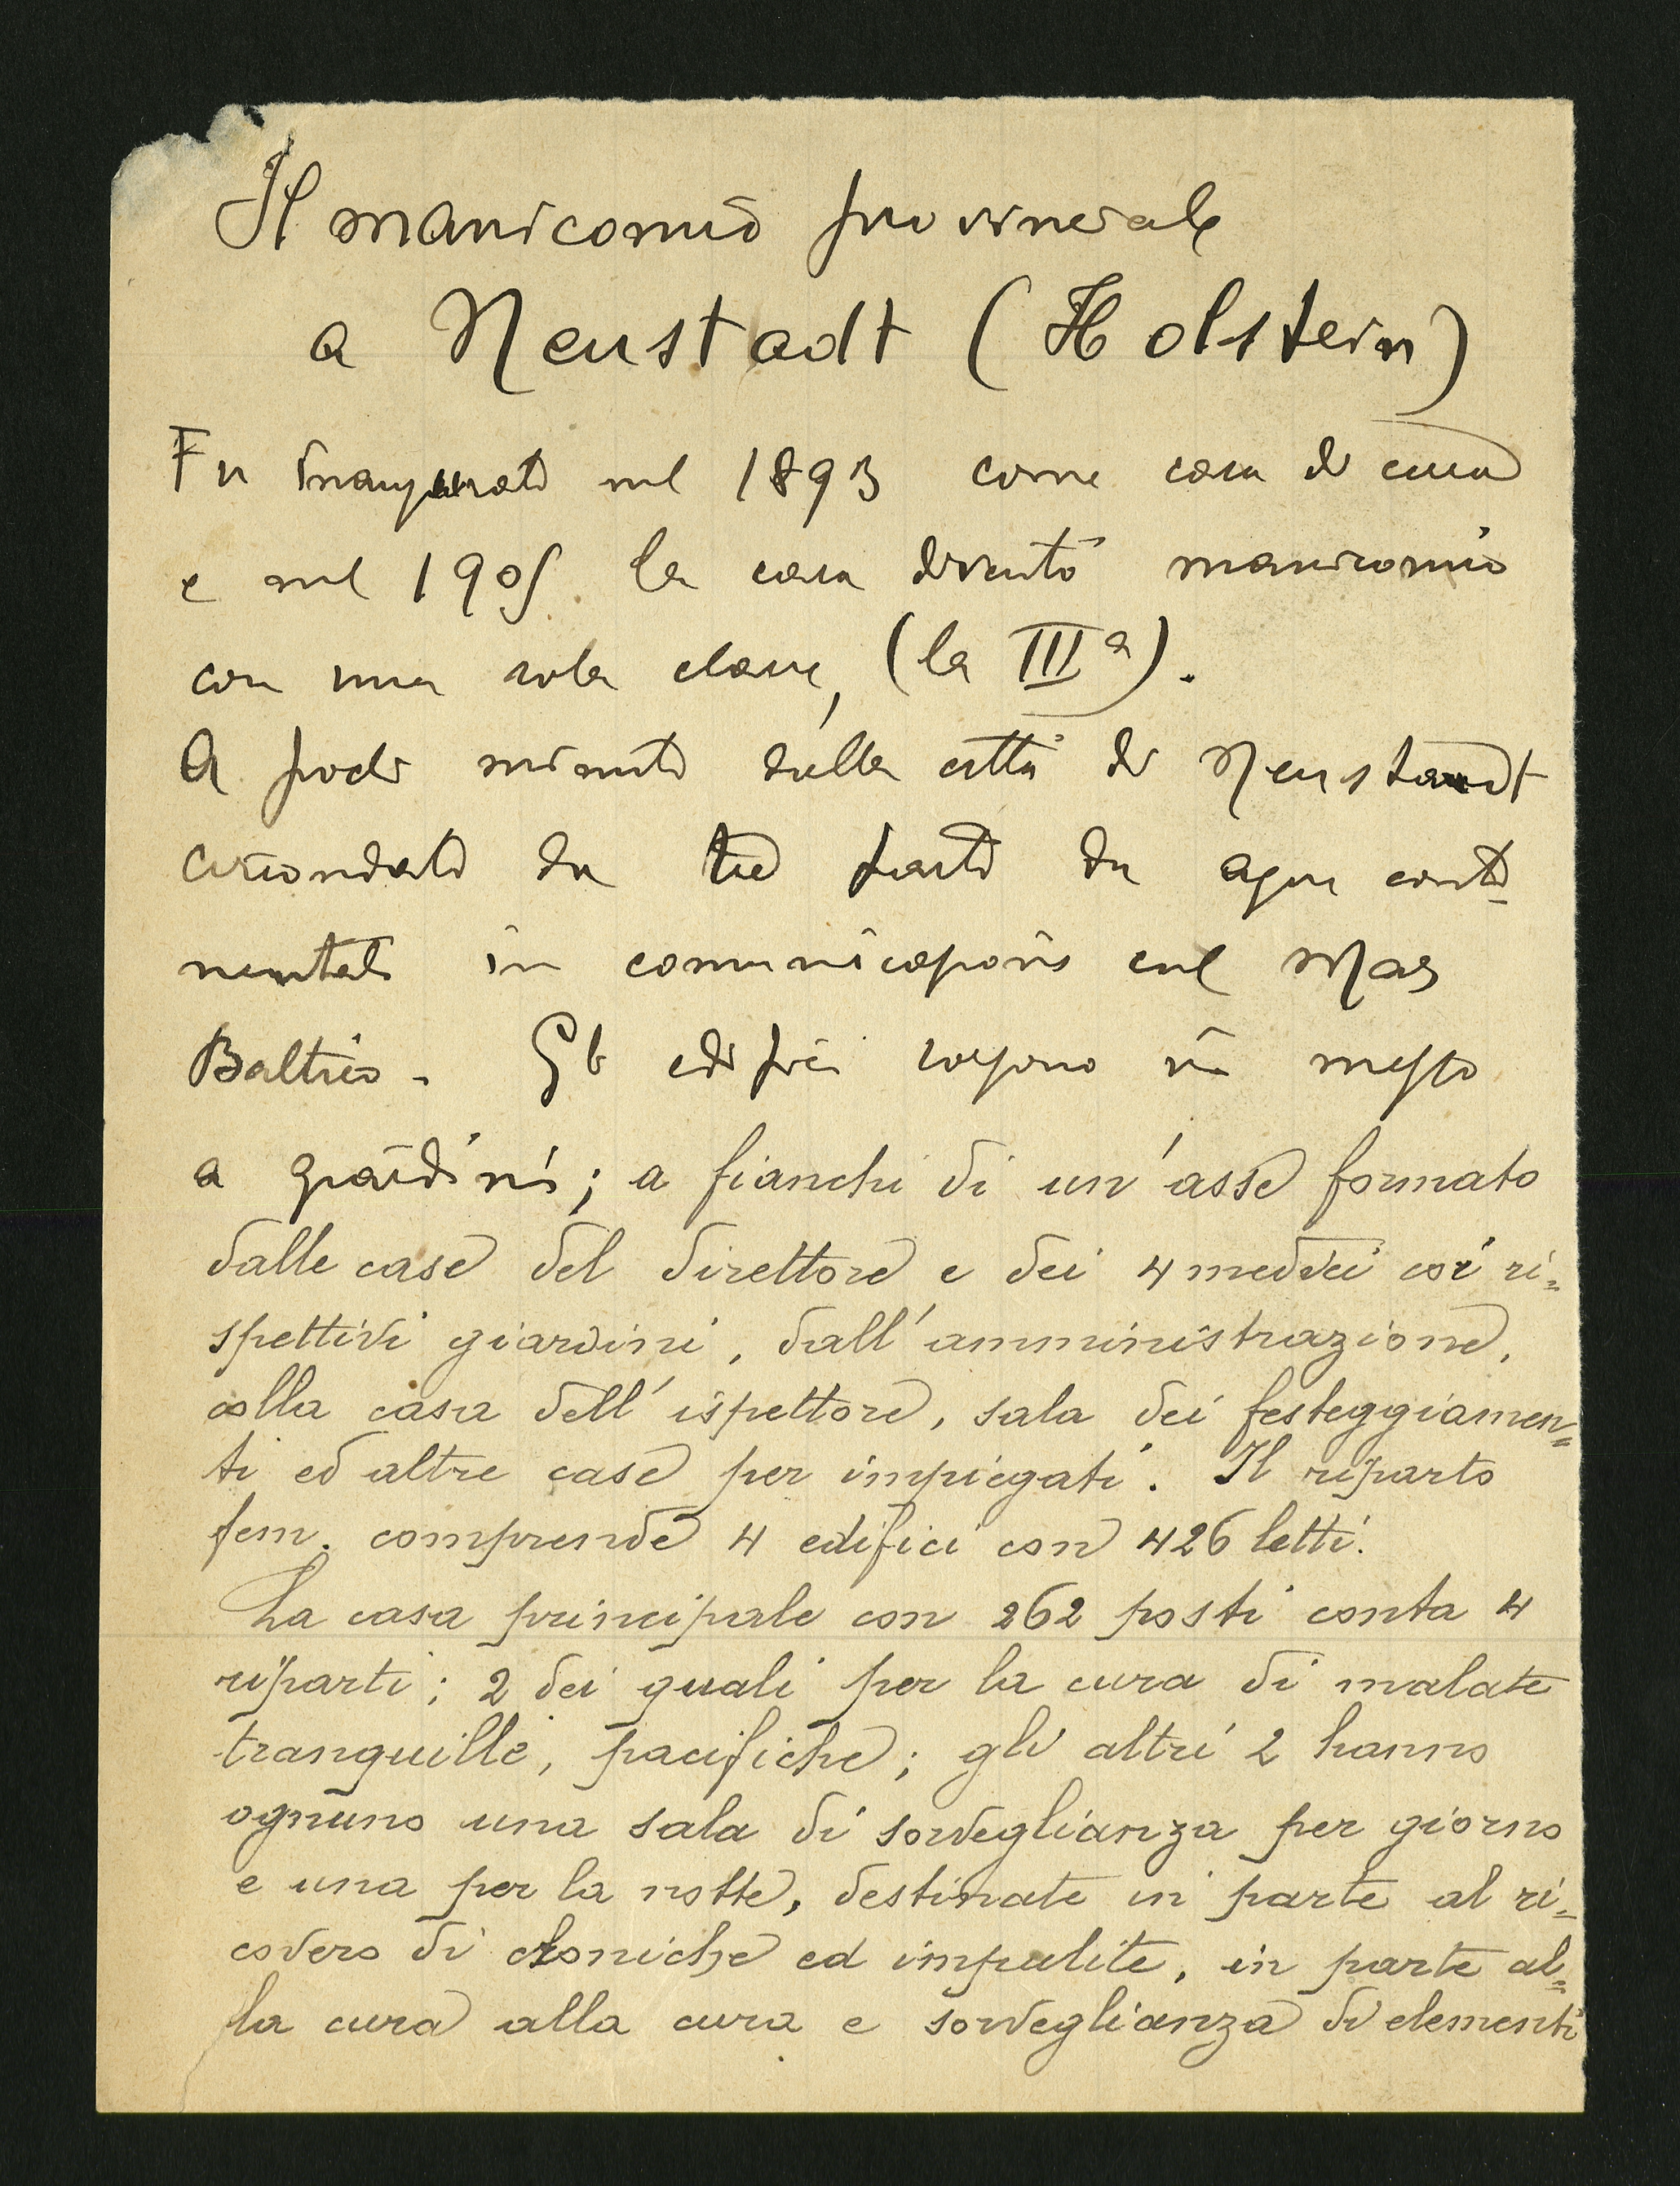 Il manicomio provinciale
a Neustadt (Holstein)
Fu inaugurato nel 1893 come casa di cura
e nel 1905 la casa diventò manicomio
con una sola classe, (la IIIª).
A pochi minuti dalla città di Neustadt
circondato da tre parti da acqua conti-
nentale in comunicazione col Mar
Baltico. Gli edifici sorgono in mezzo
a giardini; a fianchi di un'asse formato
dalle case del direttore e dei 4 medici coi ri=
spettivi giardini, dall'amministrazione,
colla casa dell'ispettore, sala dei festeggiamen=
ti ed altre case per impiegati. Il riparto
fem. comprende 4 edifici con 426 letti.
La casa principale con 262 posti conta 4
riparti; 2 dei quali per la cura di malate
tranquille, pacifiche; gli altri 2 hanno
ognuno una sala di sorveglianza per giorno
e una per la notte, destinate in parte al ri=
covero di croniche ed impulite, in parte al=
la cura alla cura e sorveglianza di elementi